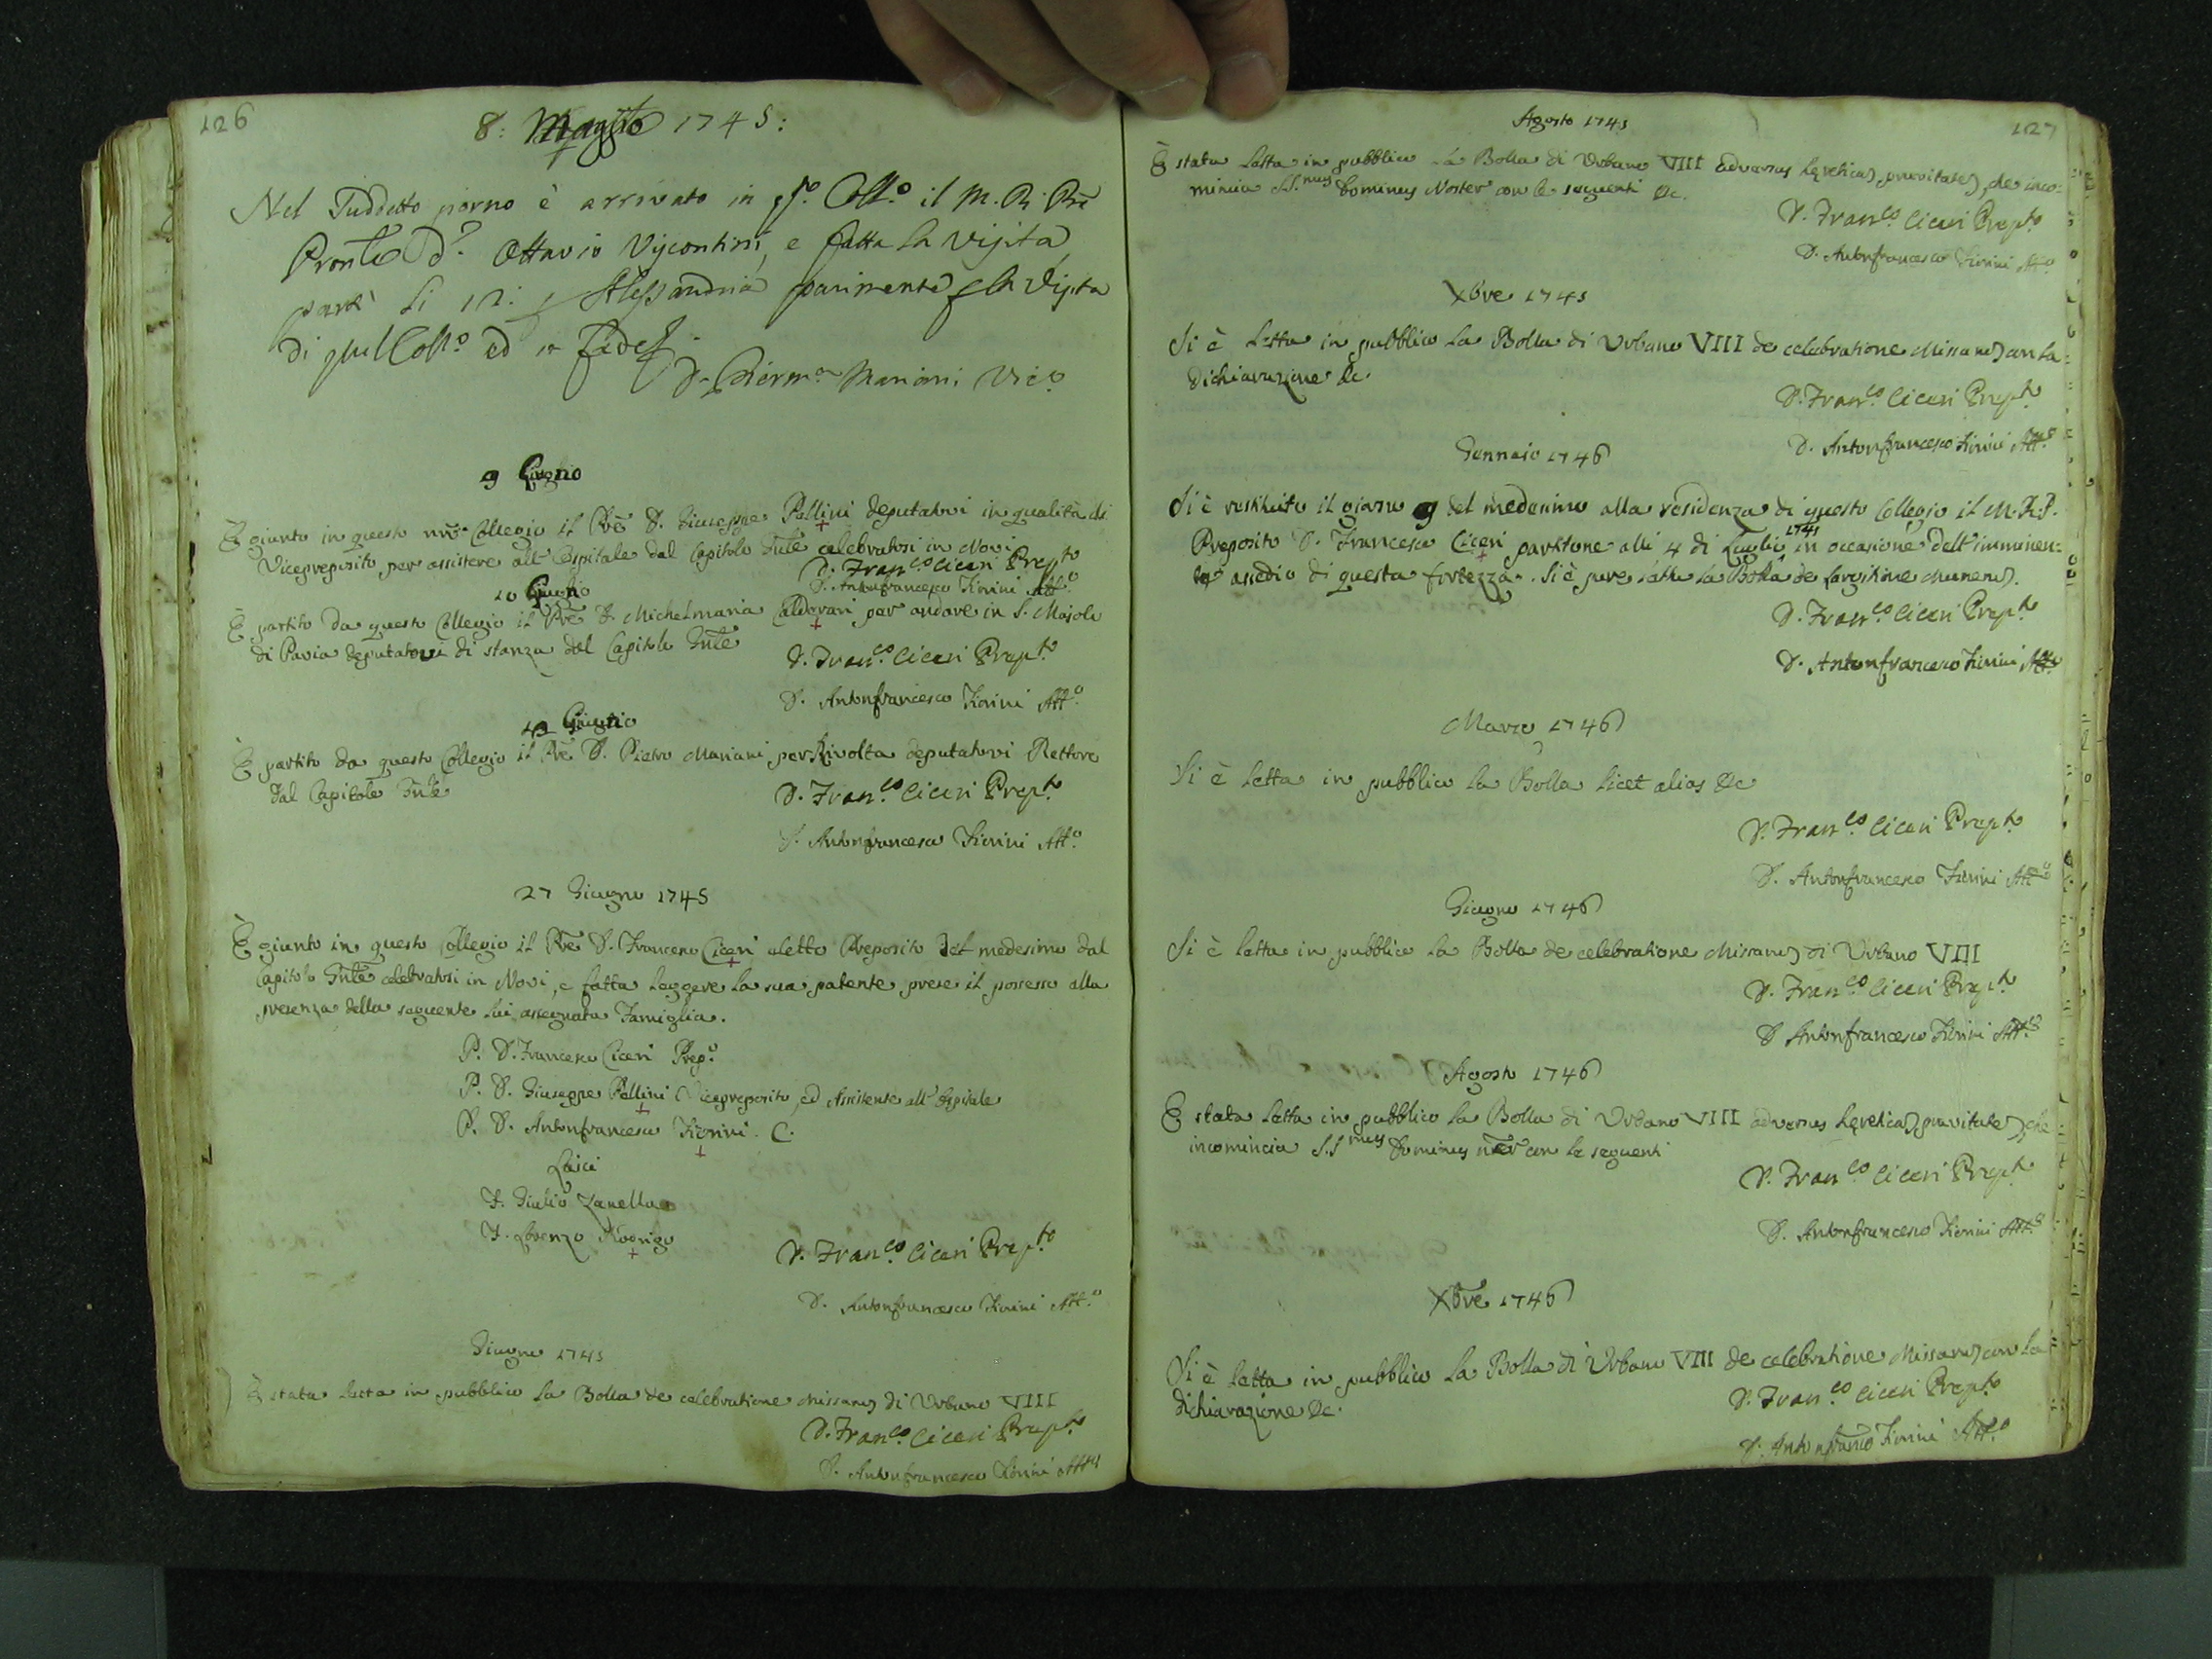 126
8: Maggio 1745:
Nel suddetto giorno è arrivato in qto. Collo. il M. R. Prē
Pronle D. Ottavio Visconti, e fatta la visita
partì li 12: p Alessandria parimente p la visita
di quel Collo. ed in fede
D. Pierma. Mariani Vico.
9 Giugno
È giunto in questo nro. Collegio il Prē D. Giuseppe Pallini deputatovi in qualità di
Vicepreposito per assistere all'Ospitale dal Capitolo Gnle celebratosi in Novi
D. Franco. Ciceri Prepto
D. Antonfrancesco Fiorini Atto.
10 Giugno
È partito da questo Collegio il Prē D. Michelmaria Caldovari per andare in S. Majolo
di Pavia deputatovi di stanza dal Capitolo Gnle
D. Franco. Ciceri Prepto.
D. Antonfrancesco Fiorini Atto.
12 Giugno
È partito da questo Collegio il Prē D. Pietro Mariani per Rivolta deputatovi Rettore
dal Capitolo Gnle
D. Franco. Ciceri Prepto.
D. Antonfrancesco Fiorini Atto.
27 Giugno 1745
È giunto in questo Collegio il Prē D. Francesco Ciceri eletto Preposito del medesimo dal
Capitolo Gnle celebratosi in Novi, e fatta leggere la sua patente prese il possesso alla
presenza della seguente lui assegnata Famiglia.
P. D. Francesco Ciceri Prepo.
P. D. Giuseppe Pallini Vicepreposito, ed Assistente all'Ospitale
P. D. Antonfrancesco Fiorini. C.
Laici
F. Giulio Zanella
F. Lorenzo Rodrigo
D. Franco. Ciceri Prepto.
D. Antonfrancesco Fiorini Atto.
Giugno 1745
È stata letta in pubblico la Bolla de celebratione Missarum di Urbano VIII
D. Franco. Ciceri Prepto.
D. Antonfrancesco Fiorini Atto.
127
Agosto 1745
È stata letta in pubblico la Bolla di Urbano VIII adversus hęreticam pravitatem, che inco:
mincia SS.mus Dominus Noster con le seguenti &c.
D. Franco. Ciceri Prepto
D. Antonfrancesco Fiorini Atto.
Xbre 1745
Si è letta in pubblico la Bolla di Urbano VIII de celebratione Missarum con la
dichiarazione &c.
D. Franco. Ciceri Prepto.
D. Antonfrancesco Fiorini Atto.
Gennaio 1746
Si è restituito il giorno 9 del medesimo alla residenza di questo Collegio il M. R. P.
Preposito D. Francesco Ciceri partitone alli 4 di Luglio 1745 in occasione dell'imminen:
te assedio di questa fortezza. Si è pure letta la Bolla de largitione munerum.
D. Franco. Ciceri Prepto
D. Antonfrancesco Fiorini Atto
Marzo 1746
Si è letta in pubblico la Bolla licet alias &c
D. Franco. Ciceri Prepto
D. Antonfrancesco Fiorini Atto.
Giugno 1746
Si è letta in pubblico la Bolla de celebratione Missarum di Urbano VIII
D. Franco. Ciceri Prepto.
D. Antonfrancesco Fiorini Atto.
Agosto 1746
È stata letta in pubblico la Bolla di Urbano VIII adversus hęreticam pravitatem, che
incomincia S.S.mus Dominus nter con le seguenti
D. Franco. Ciceri Prepto
D. Antonfrancesco Fiorini Atto.
Xbre 1746
Si è letta in pubblico la Bolla di Urbano VIII de celebratione Missarum con la
dichiarazione &c.
D. Franco. Ciceri Prepto
D. Antonfranco Fiorini Atto.